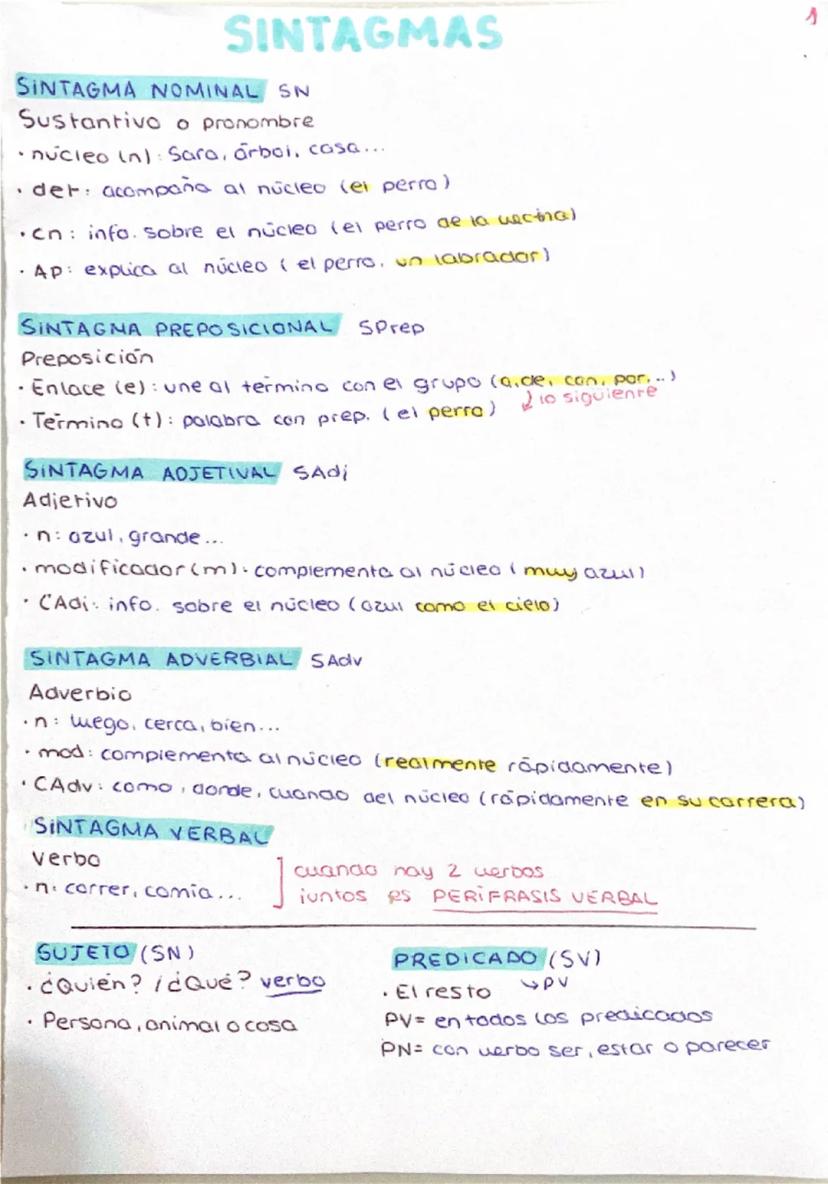 1
SINTAGMAS
SINTAGMA NOMINAL SN
Sustantivo o pronombre
· núcleo (n): Sara, árbol, casa...
· det: acompaña al núcleo (el perro)
· cn: info. sobre el núcleo (el perro de la vecina)
· Ap: explica al núcleo (el perro, un labrador)
SINTAGMA PREPOSICIONAL SPrep
Preposición
· Enlace (e): une al término con el grupo (a, de, con, por,...)
lo siguiente
· Término (t): palabra con prep. (el perro)
SINTAGMA ADJETIVAL SAdj
Adjetivo
· n: azul, grande...
· modificador (m): complementa al núcleo (muy azul)
· CAdj: info. sobre el núcleo (azul como el cielo)
SINTAGMA ADVERBIAL SAdv
Adverbio
· n: luego, cerca, bien...
· mod: complementa al núcleo (realmente rápidamente)
· CAdv: como, donde, cuando del núcleo (rápidamente en su carrera)
SINTAGMA VERBAL
Verbo
· n: correr, comía...
cuando hay 2 verbos
juntos es PERÍFRASIS VERBAL
SUJETO (SN)
· ¿Quién? / ¿Qué? verbo
· Persona, animal o cosa
PREDICADO (SV)
· El resto ↳PV
PV= en todos los predicados
PN= con verbo ser, estar o parecer